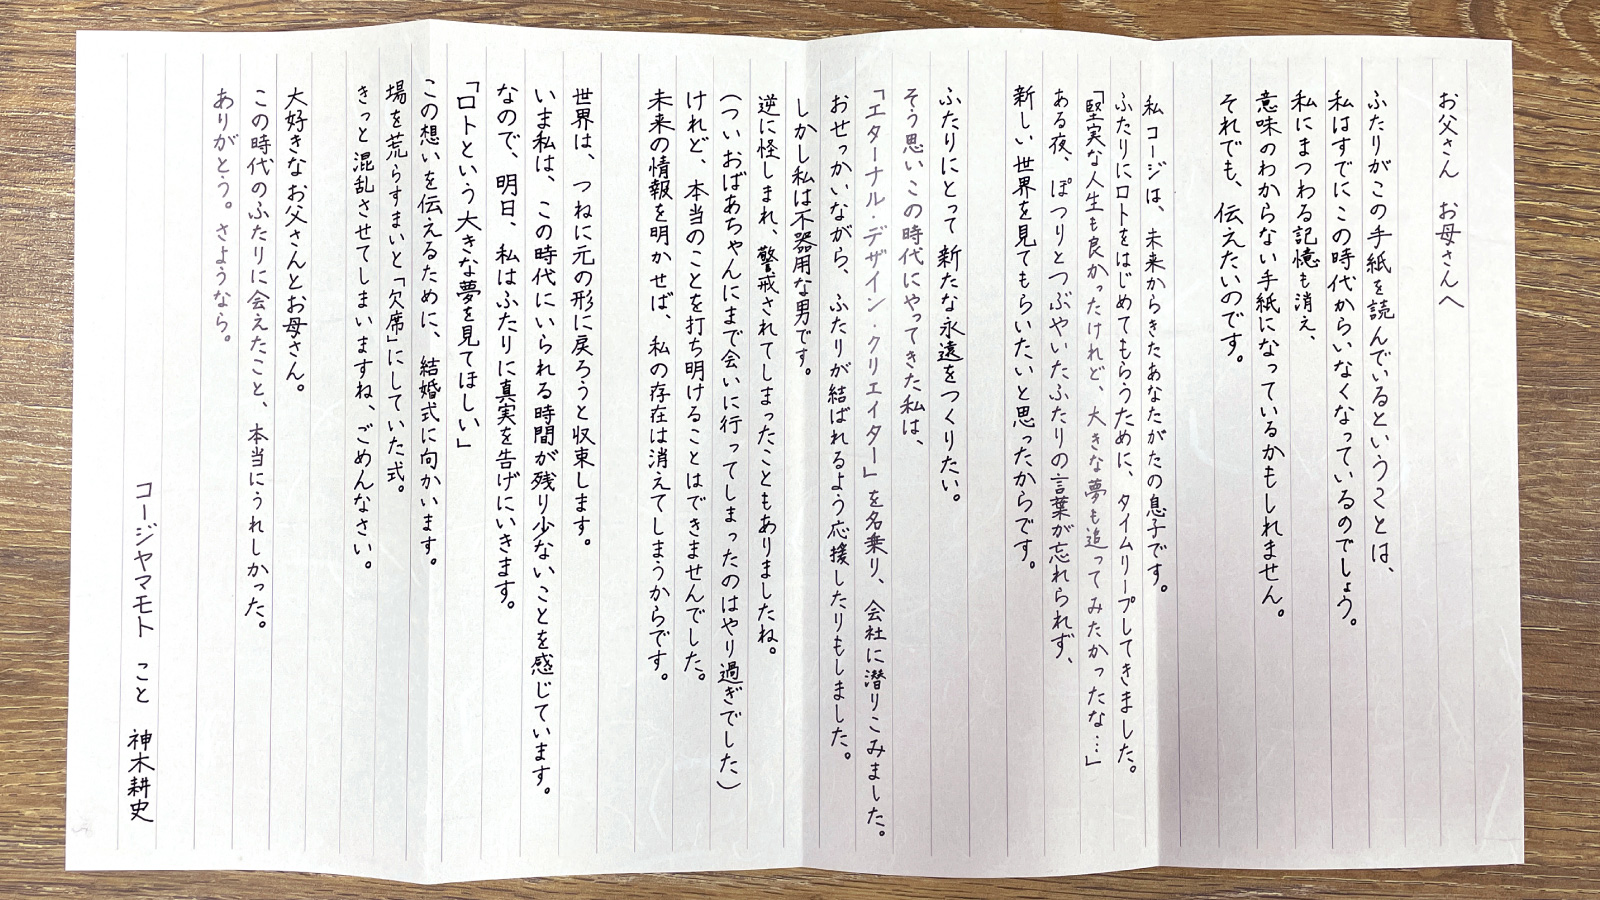 お父さん　お母さんへ
ふたりがこの手紙を読んでいるということは、
私はすでにこの時代からいなくなっているのでしょう。
私にまつわる記憶も消え、
意味のわからない手紙になっているかもしれません。
それでも、伝えたいのです。
私 コージは、未来からきたあなたがたの息子です。
ふたりにロトをはじめてもらうために、タイムリープしてきました。
「堅実な人生も良かったけれど、大きな夢も追ってみたかったな…」
ある夜、ぽつりとつぶやいたふたりの言葉が忘れられず、
新しい世界を見てもらいたいと思ったからです。
ふたりにとって新たな永遠をつくりたい。
そう思いこの時代にやってきた私は、
「エターナル・デザイン・クリエイター」を名乗り、会社に潜りこみました。
おせっかいながら、ふたりが結ばれるよう応援したりもしました。
しかし私は不器用な男です。
逆に怪しまれ、警戒されてしまったこともありましたね。
(ついおばあちゃんにまで会いに行ってしまったのはやり過ぎでした)
けれど、本当のことを打ち明けることはできませんでした。
未来の情報を明かせば、私の存在は消えてしまうからです。
世界は、つねに元の形に戻ろうと収束します。
いま私は、この時代にいられる時間が残り少ないことを感じています。
なので、明日、私はふたりに真実を告げにいきます。
「ロトという大きな夢を見てほしい」
この想いを伝えるために、結婚式に向かいます。
場を荒らすまいと「欠席」にしていた式。
きっと混乱させてしまいますね、ごめんなさい。
大好きなお父さんとお母さん。
この時代のふたりに会えたこと、本当にうれしかった。
ありがとう。さようなら。
コージヤマモト　こと　神木耕史